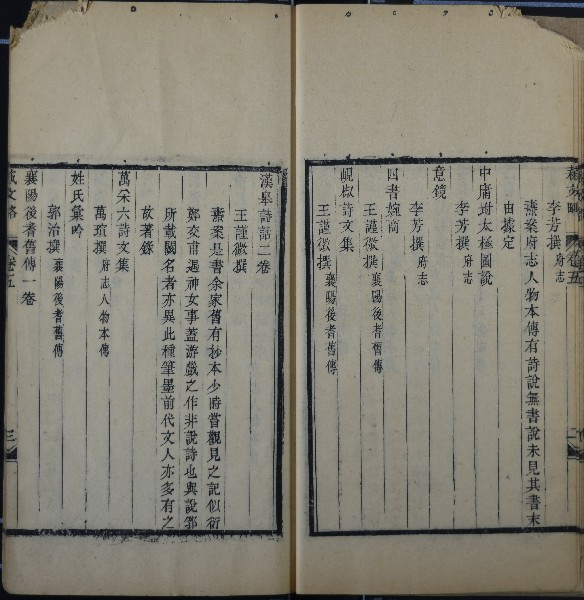 李芳撰府志
燾案府志人物本傳有詩說無書說未見其書末
由據定
中庸對太極圖說
李芳撰府志
意鏡
李芳撰府志
四書婉商
王謹微撰襄陽後耆舊傳
峴樵詩文集
王謹微撰襄陽後耆舊傳
漢皋詩話二卷
王謹微撰
燾案是書余家舊有抄本少時嘗觀見之記似衍
鄭交甫遇神女事蓋游戲之作非說詩也與說郛
所載闕名者亦異此種筆墨前代文人亦多有之
故著錄
萬采六詩文集
萬瑄撰府志人物本傳
姓氏彙吟
郭治撰襄陽後耆舊傳
襄陽後耆舊傳一卷
藝文略 卷五 三